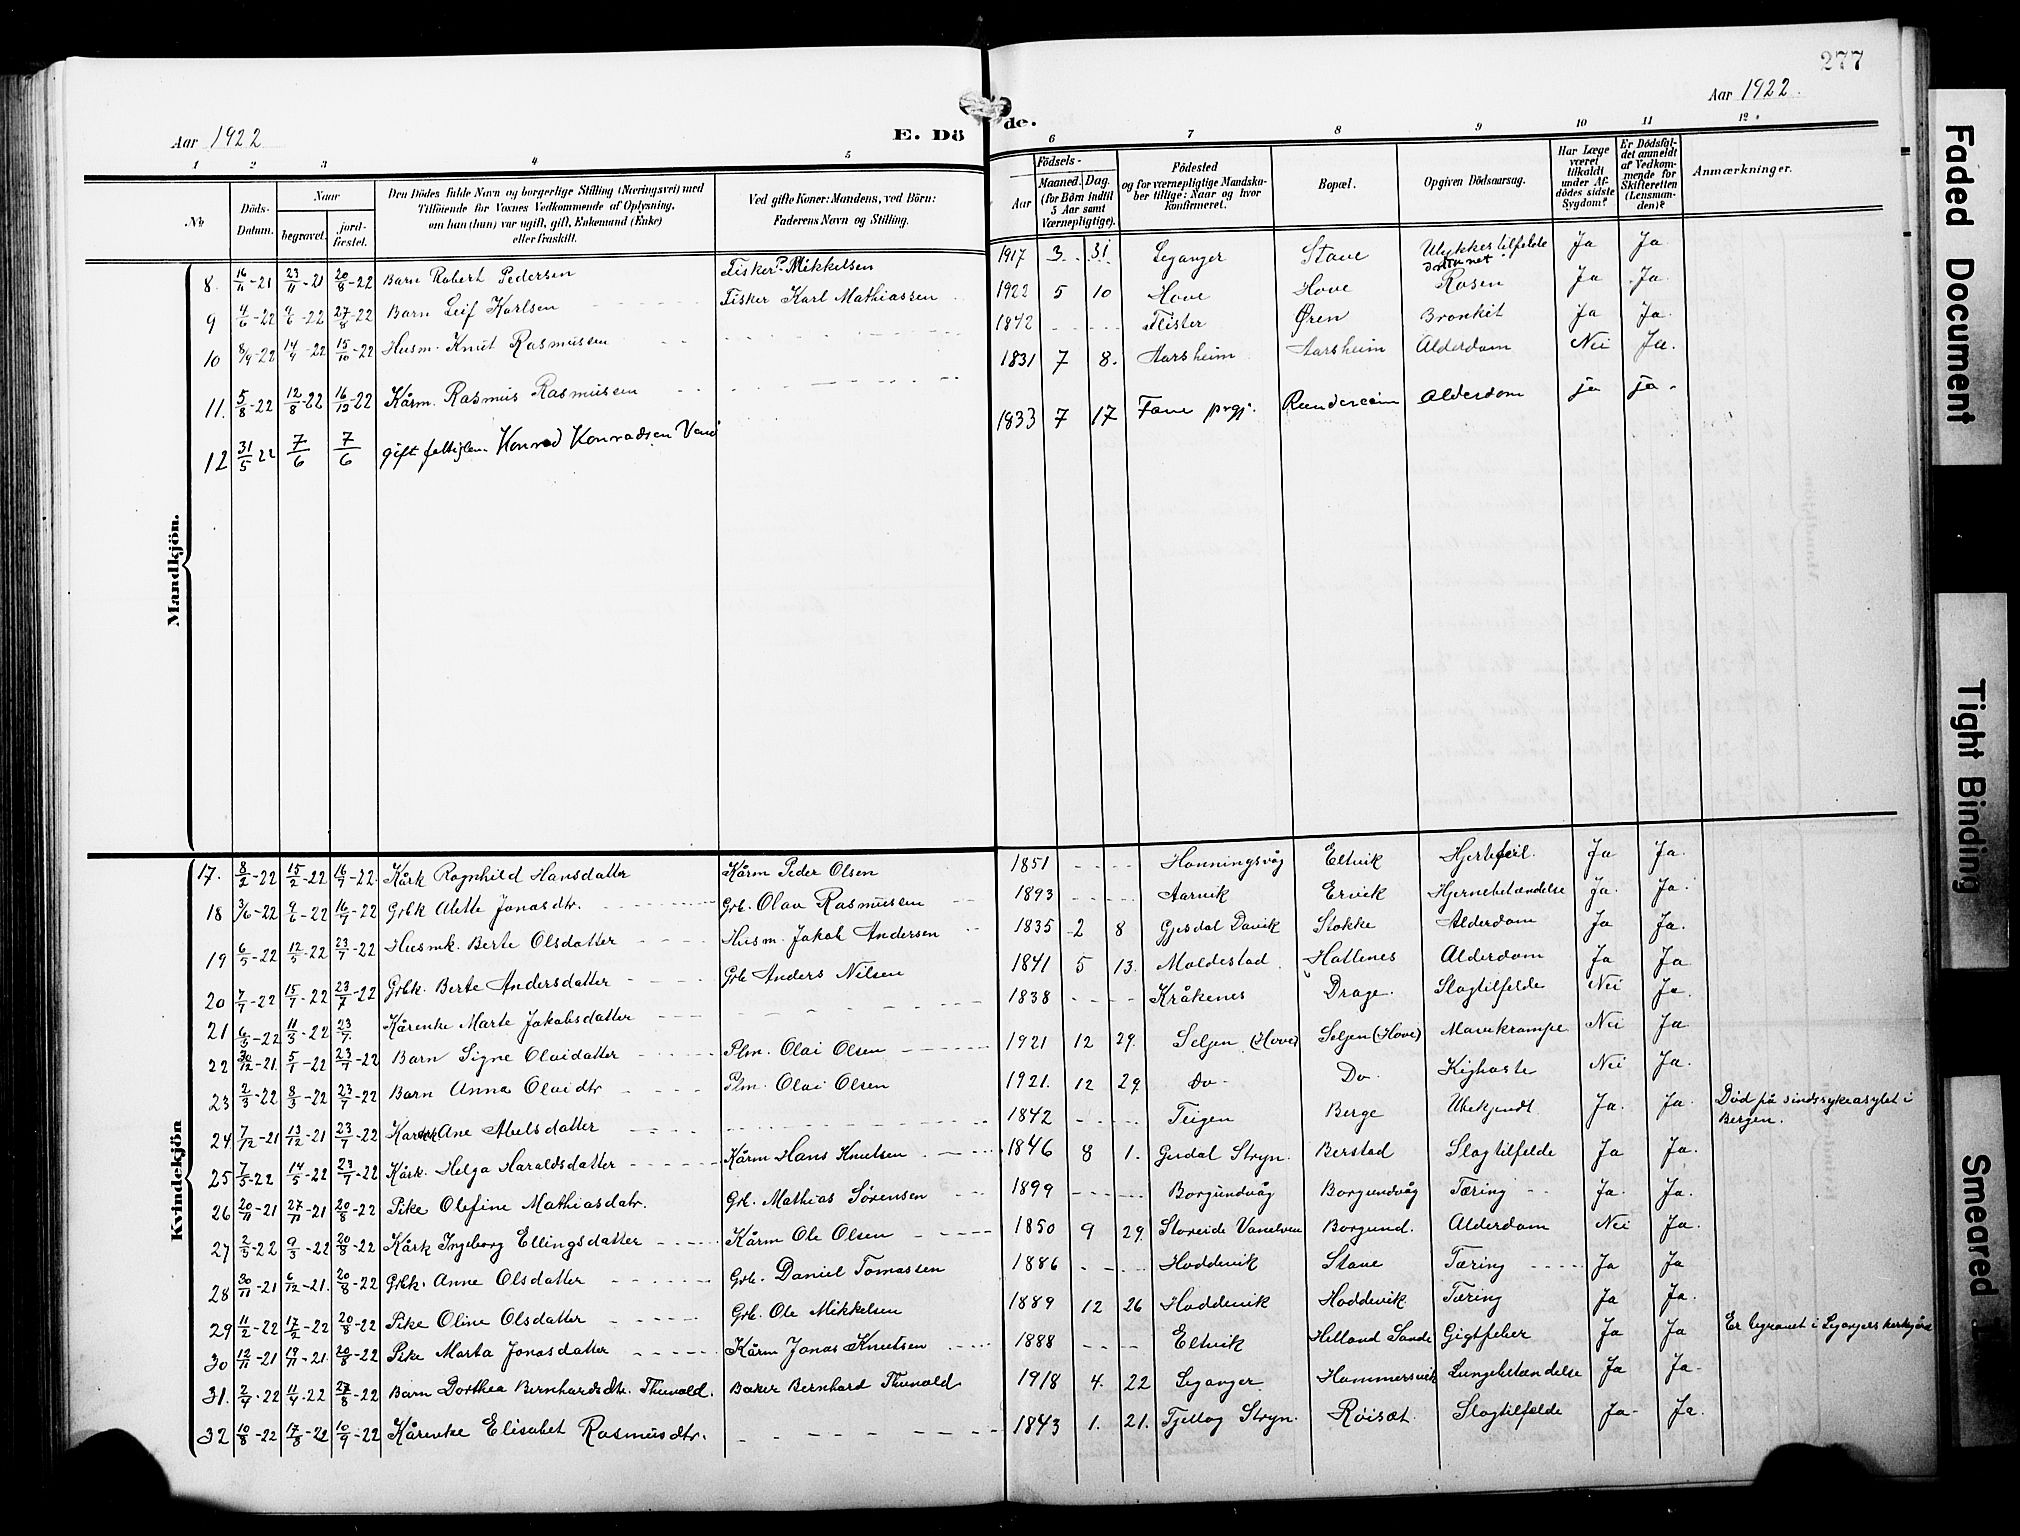 277
Aar 1922
Aar 1922.
E. Dö de.
1 2 3 4 5 6 7 8 9 10 11 12
No Döds-Datum. Naar begravet. jordfæstet. Den Dödes fulde Navn og borgerlige Stilling (Næringsvei) med Tilföiende for Voxnes Vedkommende af Oplysning, om han (hun) var ugift, gift, Enkemand (Enke) eller fraskilt. Ved gifte Koner: Mandens, ved Börn: Faderens Navn og Stilling. Födsels- Aar Maaned. Dag. (for Börn indtil 5 Aar samt Værnepligtige). Födested og for værnepligtige Mandskaber tillige: Naar og hvor konfirmeret. Bopæl. Opgiven Dödsaarsag. Har Læge været tilkaldt under Afdödes sidste Sygdom? Er Dödsfaldet anmeldt af Vedkommende for Skifteretten (Lensmanden)? Anmærkninger.
Mandkjön.
8. 16/11-21 23/11-21 20/8-22 Barn Robert Pedersen Fisker P. Mikkelsen 1917 3 31 Leganger Stave Ulykkestilfelde druknet Ja Ja
9 4/6-22 9/6-22 27/8-22 Barn Leif Karlsen Fisker Karl Mathiassen 1922 5 10 Hove Hove Rosen Ja Ja.
10 8/9-22 14/9-22 15/10-22 Husm. Knut Rasmussen 1842 Flister Øren Bronkit Ja Ja.
11. 5/8-22 12/8-22 16/12-22 Kårm. Rasmus Rasmussen 1831 7 8. Aarsheim Aarsheim Alderdom Nei Ja.
12 31/5-22 7/6 7/6 gift fattiglem Konrad Konradsen 1833 7 17 Fane prgj. Alderdom ja ja.
Kvindekjön
17. 8/2-22 15/2-22 16/7-22 Kårk Ragnhild Hansdatter Kårm Peder Olsen 1851 Honningsvåg Eltvik Hjertefeil. Ja Ja.
18 3/6-22 9/6-22 16/7-22 Grbk Alette Jonasdtr. Grb. Olav Rasmussen 1893 Aarvik Ervik Hjernebetændelse Ja. Ja.
19 6/5-22 12/5-22 23/7-22 Husmk. Berte Olsdatter Husm. Jakob Andersen 1835 2 8 Gjesdal Davik Stokke Alderdom Ja Ja.
20 7/7-22 15/7-22 23/7-22 Grbk. Berte Andersdatter Grb Anders Nilsen 1841 5 13. Moldestad Hallenes Alderdom Ja Ja
21 6/3-22 11/3-22 23/7. Kårenke Marte Jakobsdatter 1838 Kråkenes Drage. Slagtilfelde Nei Ja.
22 30/12-21 5/1-22 23/7-22 Barn Signe Olaidatter Plm. Olai Olsen 1921 12 29. Seljen (Hove) Seljen (Hove) Mavekrampe Nei Ja
23 2/3-22 8/3-22 23/7-22 Barn Anna Olaidtr Plm. Olai Olsen 1921. 12 29. Do- Do- Kighoste Nei Ja.
24 7/12-21 13/12-21 23/7-22 Ane Abelsdatter 1842 Teigen Berge Ubekjendt Ja. Ja. Död på sindssykeasylet i Bergen.
25 7/5-22 14/5-22 23/7-22 Kårk. Helga Haraldsdatter Kårm Hans Knutsen 1846 8 1. Gerdal Stryn. Berstad Slagtilfelde Ja Ja.
26 20/11-21 27/11-21 20/8-22 Pike Olefine Mathiasdatr. Gr. Mathias Sörensen 1899 Borgundvåg Borgundvåg Tæring Ja. Ja.
27 2/3-22 9/3-22 20/8-22 Kårk Ingeborg Ellingsdatter Kårm Ole Olsen 1850 9 29. Storeide Vanelven Borgund. Alderdom Nei Ja.
28 30/11-21 6/12-21. 20/8-22 Grbk. Anne Olsdatter Grb. Daniel Tomassen 1886 Hoddevik Stave Tæring Ja Ja
29 11/2-22 17/2-22 20/8-22 Pike Oline Olsdatter Grb. Ole Mikkelsen 1889 12 26 Hoddevik Hoddevik Tæring Ja Ja.
30 12/11-21 19/11-21. 20/8-22 Pike Marta Jonasdatter Kårm Jonas Knutsen 1888 Eltvik Helland Sande Gigtfeber Ja Ja Er begravet i Leganger kirkgård
31. 2/4-22 11/4-22 27/8-22 Barn Dorthea Bernhardsdtr. Thunold. Baker Bernhard Thunold 1918 4. 22 Leganger Hammersvik Lungebetændelse Ja Ja-
32 10/8-22 17/8-22 10/9-22 Kårenke Elisabet Rasmusdtr. 1843 1. 21. Tjellog Stryn. Röisæt. Slagtilfelde Ja- Ja.
Faded Document
Tight Binding
Smeared